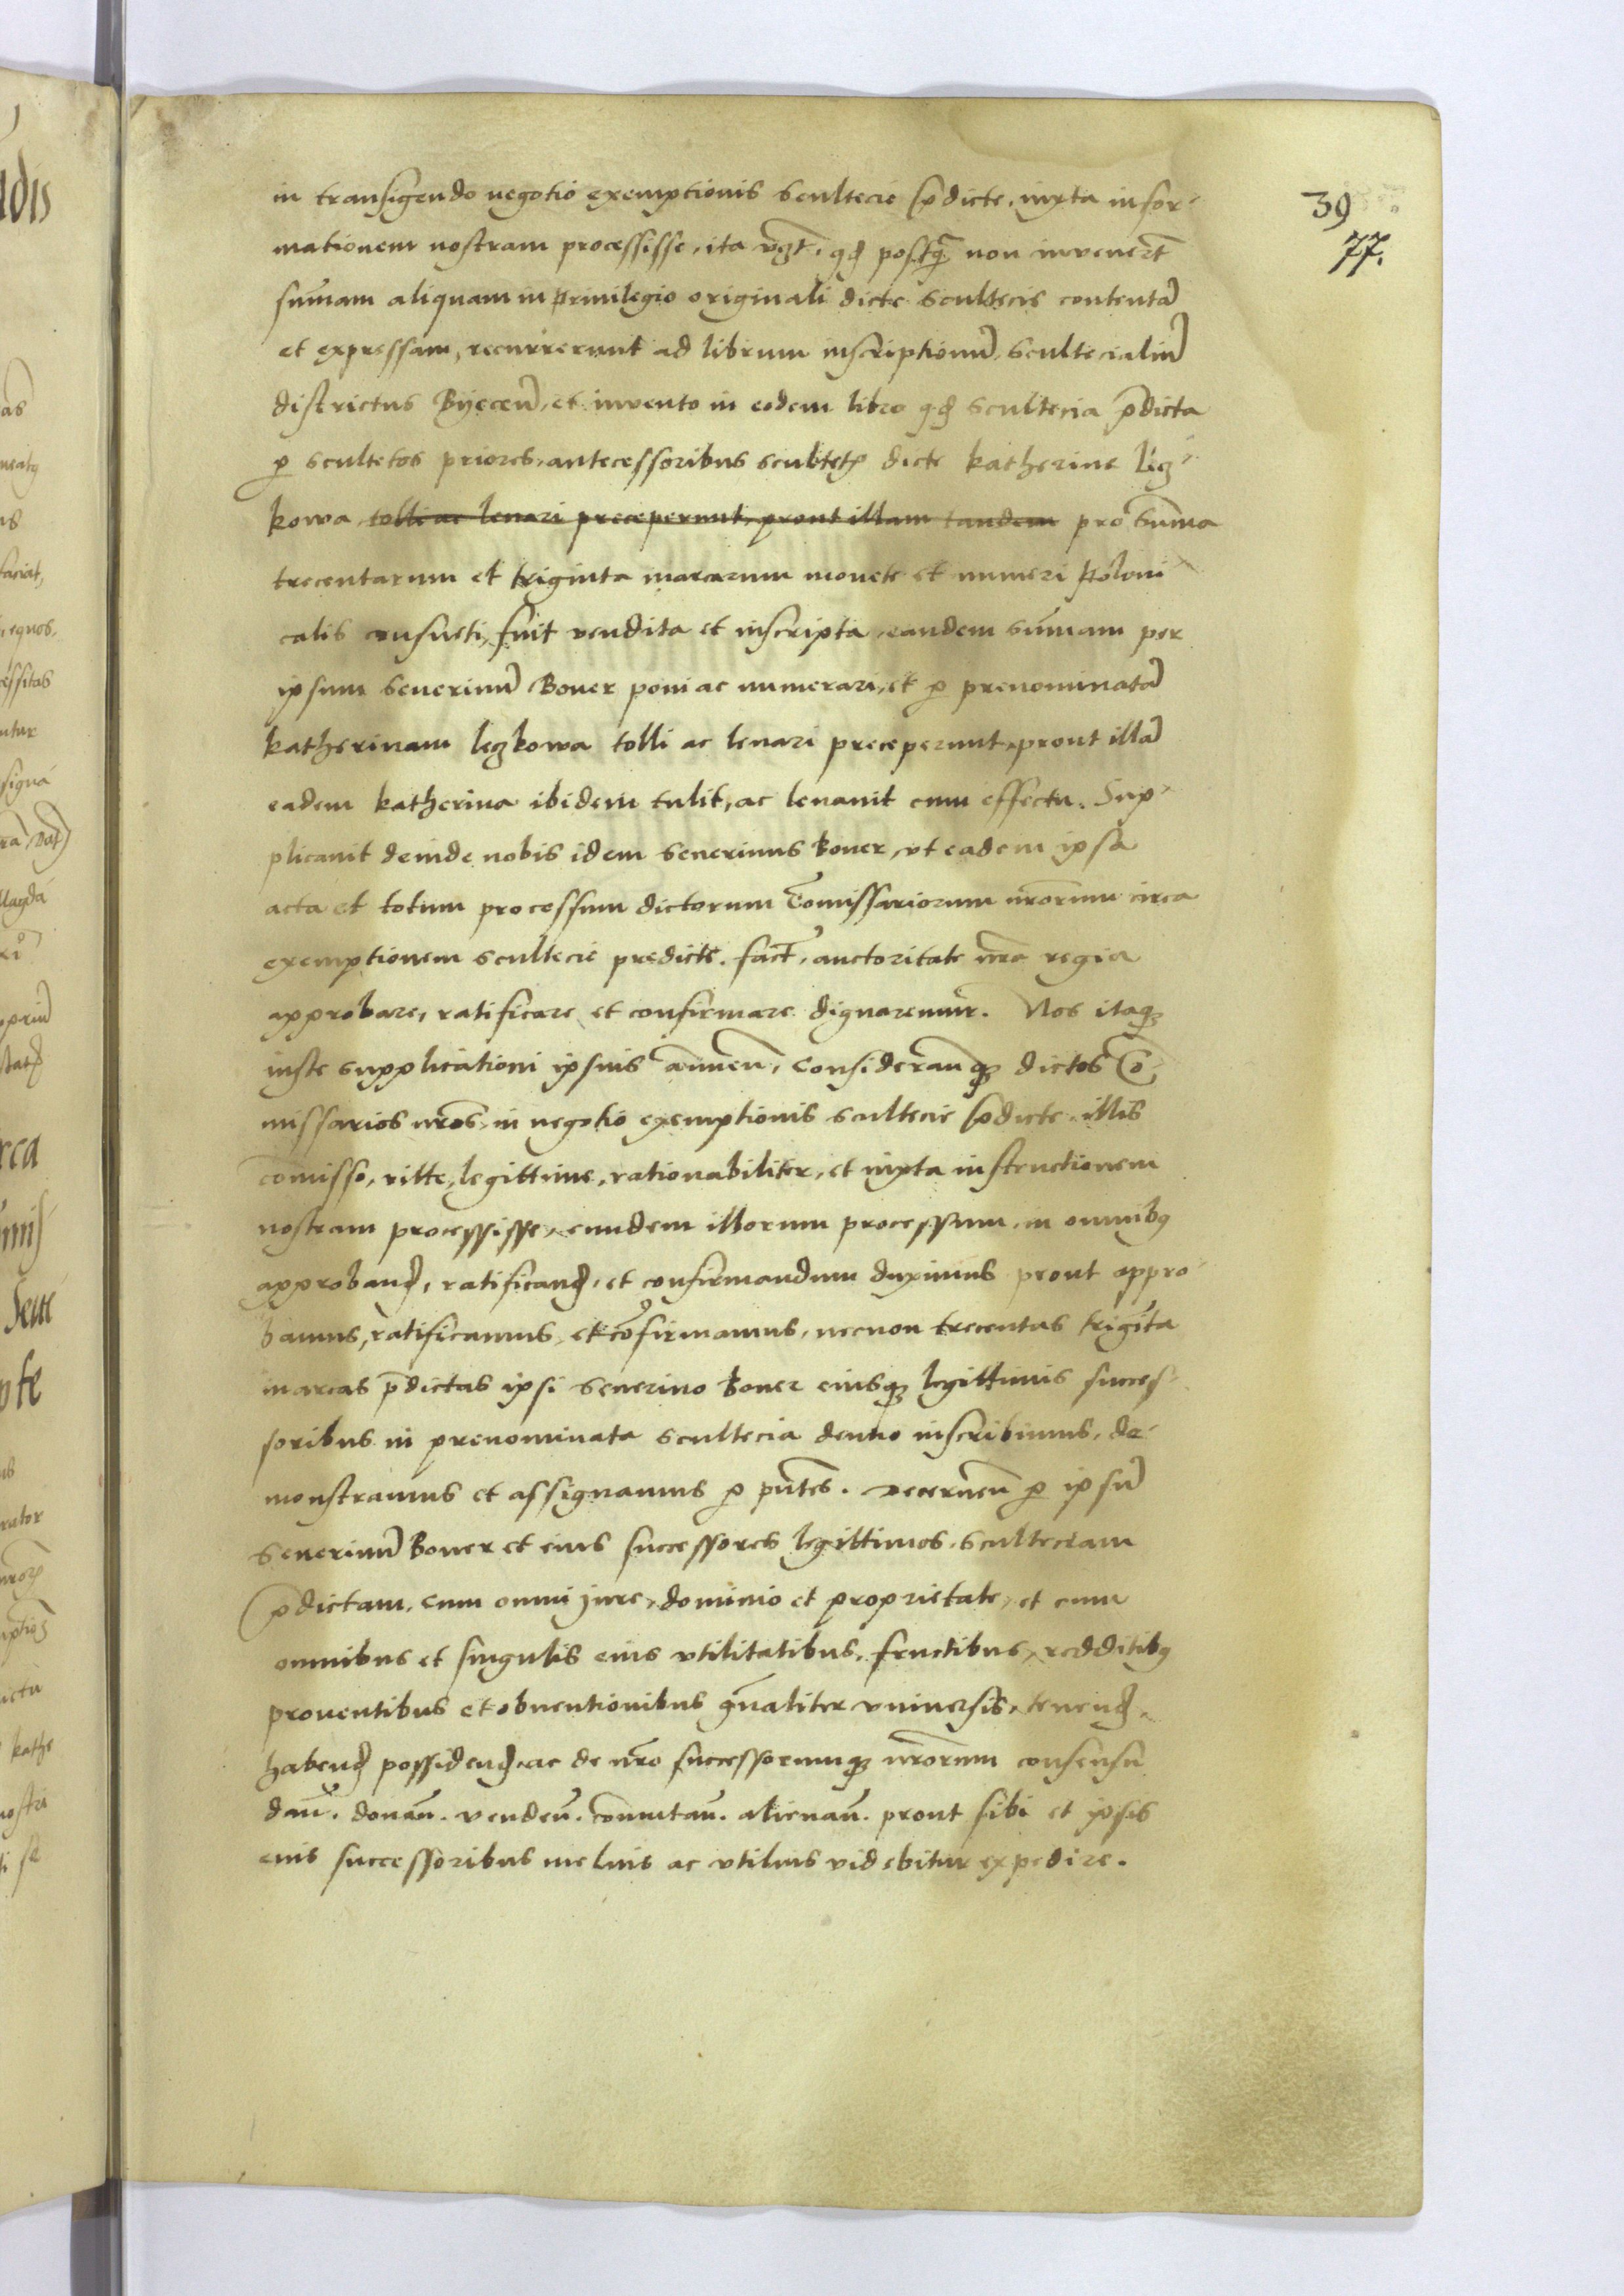 39
77.
in transigendo negotio exemptionis scultecie p̄dicte, iuxta infor-
mationem nostram processisse, ita vȝt, qđ postq̄ȝ non invener̄t
sum̄am aliquam in privilegio originali dicte scultecie contentā
et expressam, recurrerunt ad librum inscriptionū scultecialiū
districtus Byeceń, et invento in eodem libro qđ scultecia p̄dicta
ꝑ scultetos priores, antecessoribus scultetꝝ dicte Katherine Leg-
kowa tolli ac levari preceperunt, prout illam tandem pro sum̄a
trecentarum et triginta marcarum monete et numeri poloni
calis consueti, fuit vendita et inscripta, eandem sum̄am per
ipsum Severinū Boner poni ac numerari, et ꝑ prenominatā
Katherinam Legkowa tolli ac levari preceperunt, prout illā
eadem Katherina ibidem tulit, ac levavit cum effectu. Sup-
plicavit deinde nobis idem Severinus Boner, vt eadem ipsa
acta et totum processum dictorum Com̄issariorum nr̄orum circa
exemptionem scultecie predicte fact̄, auctoritate nr̄a regia
approbare, ratificare et confirmare dignaremur. Nos itaqȝ
iuste supplicationi ipsius annueń, considerańqȝ dictos Co-
missarios nr̄os, in negotio exemptionis scultecie p̄dicte illis
com̄isso, ritte, legittime, rationabiliter, et iuxta instructionem
nostram processisse, eundem illorum processum in omnibꝰ
approband̄, ratificand̄, et confirmandum duximus prout appro
bamus, ratificamus, et cōfirmamus, necnon trecentas trigīta
marcas p̄dictas ipsi Severino Boner eiusqȝ legittimis succes-
soribus in prenominata scultecia denuo inscribimus, de-
monstramus et assignamus ꝑ pn̄tes. Decerneń ꝑ ipsū
Severinū Boner et eius successores legittimos, scultetiam
p̄dictam, cum omni jure, dominio et proprietate, et cum
omnibus et singulis eius vtilitatibus, fructibus, redditibꝰ
proventibus et obventionibus gn̄aliter vniversis, tenend̄,
habend̄ possidend̄, ac de nr̄o successorumqȝ nr̄orum consensu
dań. donań. vendeń. com̄utań. alienań. prout sibi et ipsis
eius successoribus melius ac vtilius videbitur expedire.